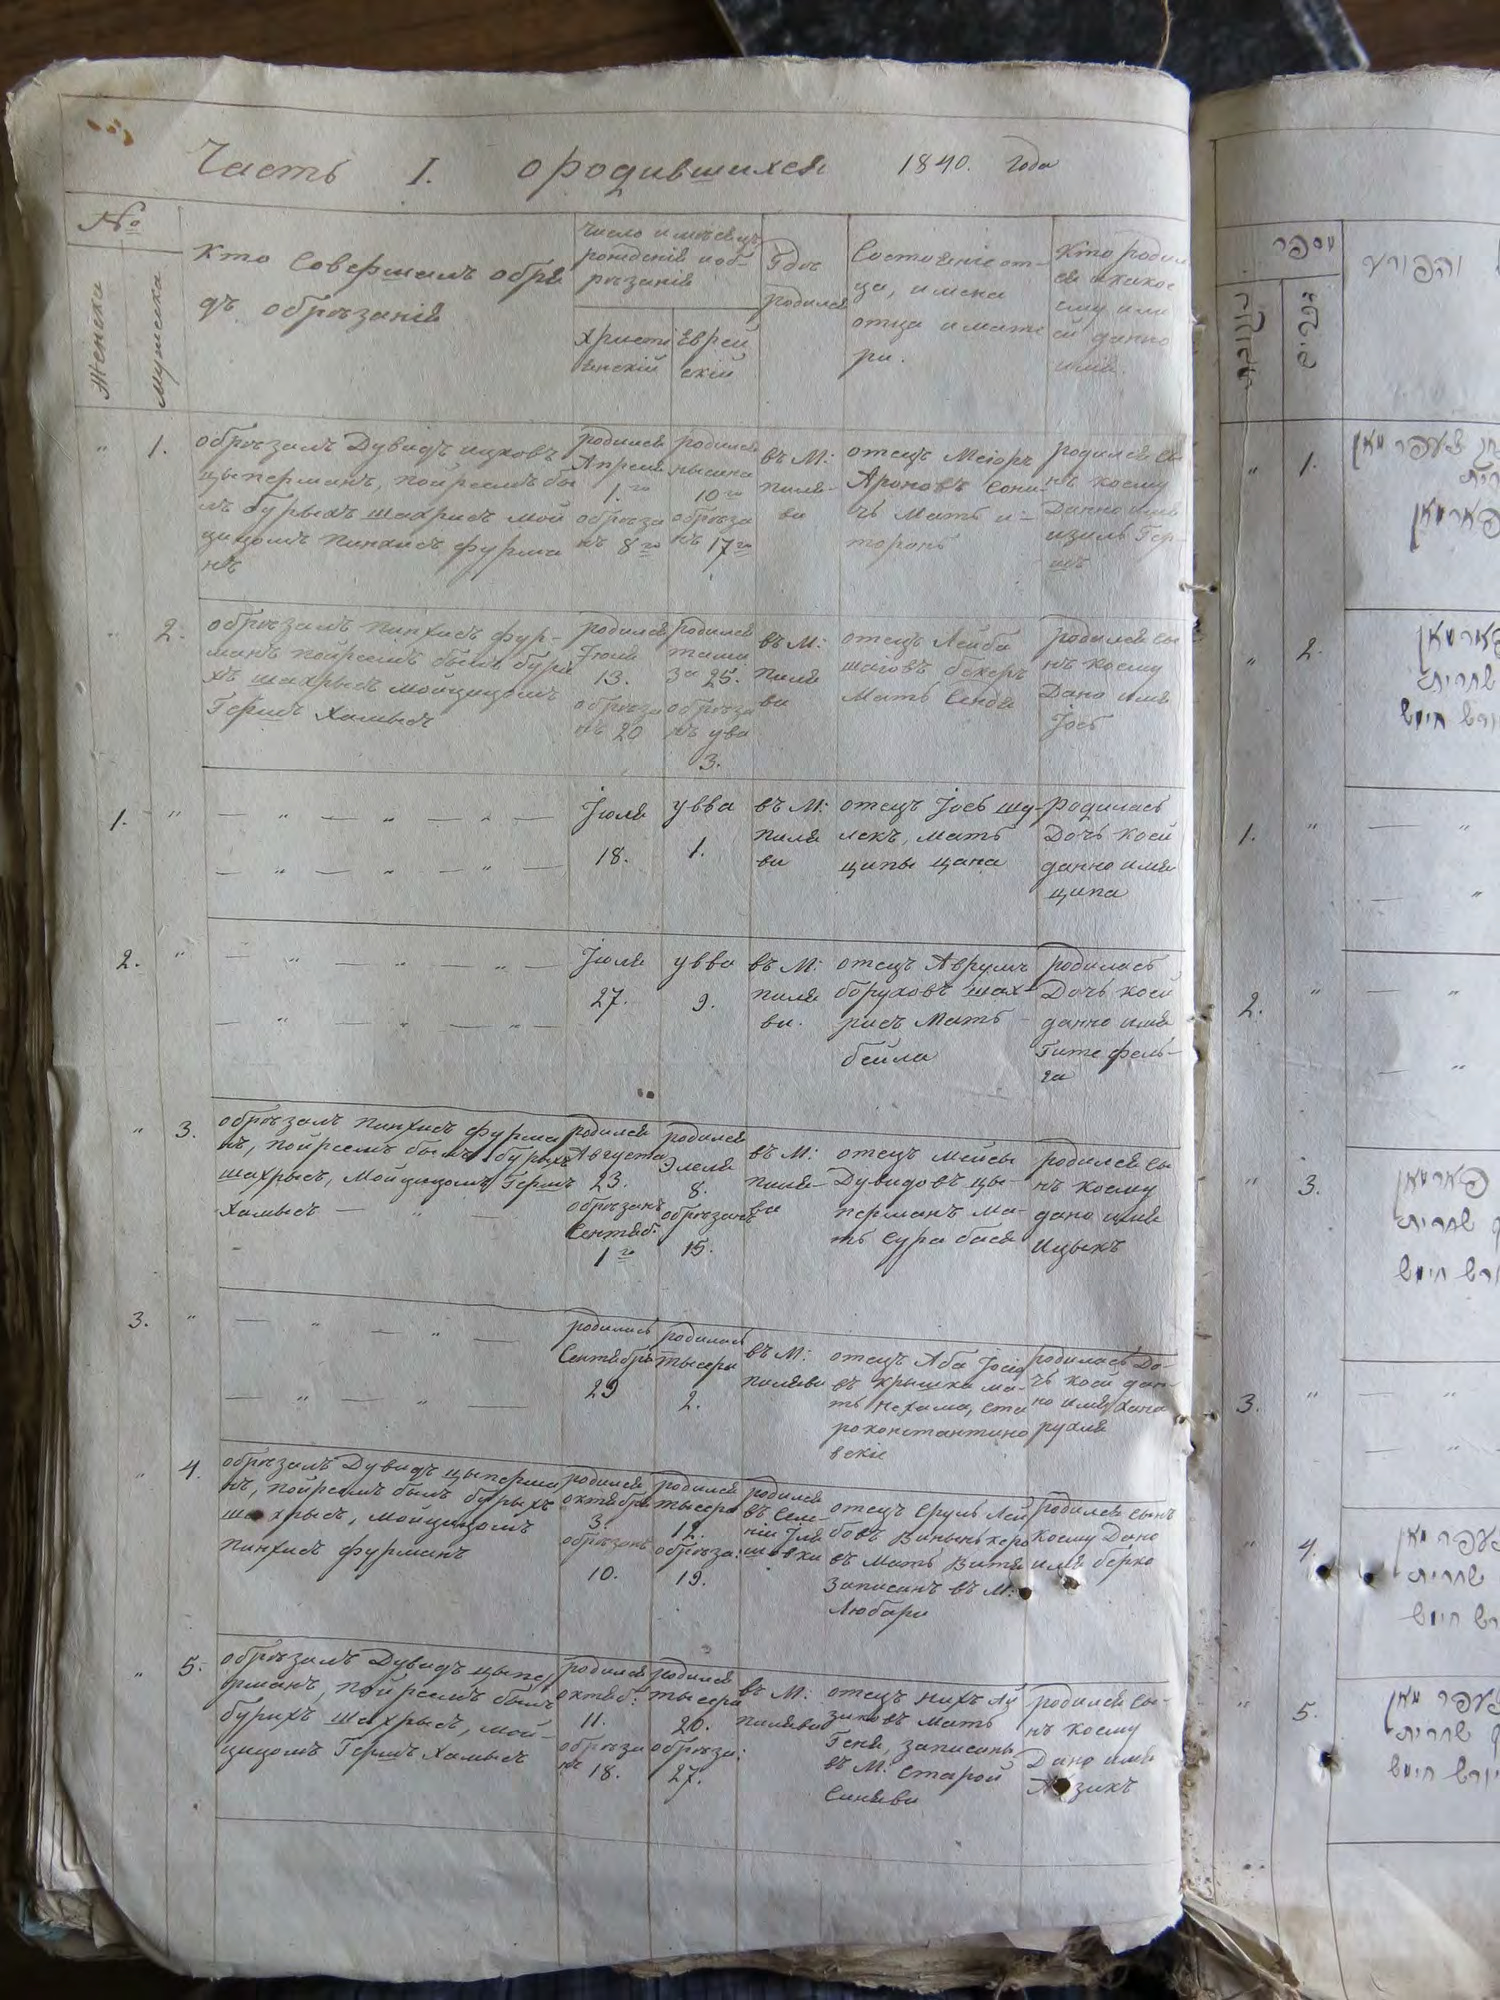 Часть I. о родившихся 1840. года
№
Женска
мужеска
Кто Совершалъ обря
дъ обрѣзанія
Число и мѣсяцъ
рожденія и об-
рѣзанія
Христі
янскій
Еврей
скій
Гдѣ
родился
Состояніе от-
ца, имена
отца и мате
ри.
Кто родил
ся и какое
ему или
ей данно
имя.
" 1.
обрѣзалъ Дувидъ ицковъ
цыперманъ, пойреемъ бы
лъ бурыхъ шахрисъ мой
цицомъ пинхисъ фурма
нъ
родился
Апреля
1.го
обрѣза
нъ 8го
родился
нысана
10го
обрѣза
нъ 17го
въ М:
пиля-
ви
отецъ Меіоръ
Ароновъ
Мать
родился сы
нъ коему
Данно имя
Гер-
шъ
" 2.
обрѣзалъ пинхисъ фур-
манъ пойреемъ былъ бури
хъ шахрысъ мойцицомъ
Гершъ Хамысъ
родился
Іюля
13.
обрѣза
нъ 20
родился
тамы
за 25.
обрѣза
нъ увва
3.
въ М:
пиля
ви
отецъ Лейба
шаіовъ бехеръ
Мать Сендя
родился сы
нъ коему
Дано имя
Іосъ
1. "
— " — " — " —
— " — " — " —
Іюля
18.
увва
1.
въ М:
пиля
ви
отецъ Іосъ шу-
лекъ, мать
ципы цапа
родилась
Дочь коей
данно имя
ципа
2. "
— " — " — " —
— " — " — " —
Іюля
27.
увва
9.
въ М:
пиля
ви.
отецъ Аврумъ
боруховъ шах-
рисъ Мать
бейла
родилась
Дочь коей
данно имя
Гите фель-
га
" 3.
обрѣзалъ пинхисъ фурма
нъ, пойреемъ былъ бурыхъ
шахрысъ, мойцицомъ Гершъ
Хамысъ — " —
родился
Августа
23.
обрѣзанъ
Сентяб:
1го
родился
Элеля
8.
обрѣзанъ
15.
въ М:
пиля-
ви
отецъ мейсы
Дувидовъ цы-
перманъ ма-
ть Сура бася
родился сы
нъ коему
дано имя
Ицыкъ
3. "
— " — " —
— " — " —
родилась
Сентября
29
родилась
тысера
2.
въ М:
пиляви
отецъ Аба Іосіо
въ крышка ма-
ть нехама, ста
роконстантино
вскіе
родилась До-
чь коей дан-
но имя Хана
рухля
" 4.
обрѣзалъ Дувидъ цыперма
нъ, пойреемъ былъ бурыхъ
шахрысъ, мойцицомъ
пинхисъ фурманъ
родился
октября
3.
обрѣзанъ
10.
родился
тысера
12.
обрѣза:
19.
родился
въ Селе-
ніи Іля
шовки
отецъ Сруль Лей
бовъ
въ Мать Витя
записанъ въ М:
Любари
родился Сынъ
коему Дано
имя берко
" 5.
обрѣзалъ Дувидъ цыпе
рманъ, пойреемъ былъ
бурихъ шахрысъ, мой-
цицомъ Гершъ Хамысъ
родился
октяб:
11.
обрѣза
нъ 18.
родился
тысера
20.
обрѣза:
27.
въ М:
пиляви
отецъ Нихъ Ай
зиковъ Мать
Геня, записаны
въ М: Старой
Синяви
родился Сы-
нъ коему
Дано имя
Айзикъ
מספר
והפורע
נקבות
זכרים
" 1.
" 2.
1. "
2. "
" 3.
שחרית
3. "
" 4.
שחרית
" 5.
שחרית